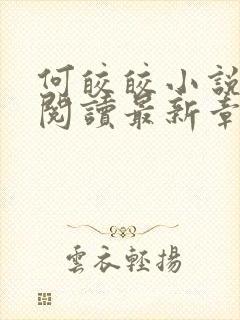 何皎皎小說
閱讀最新章
雲衣輕揚